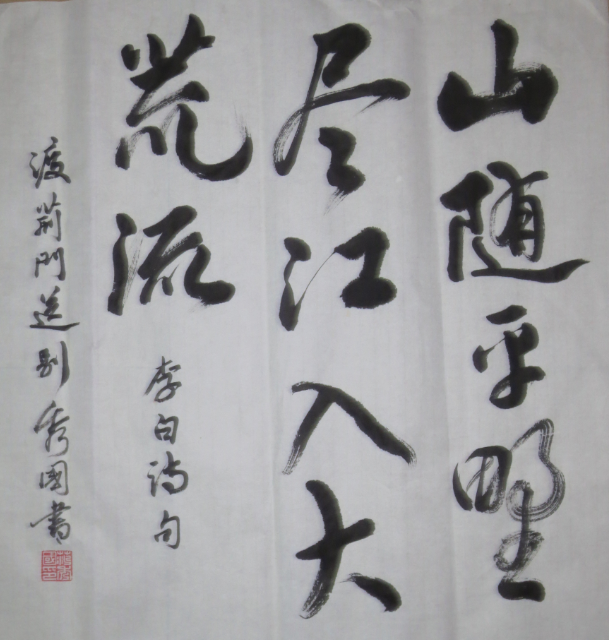 山随平野
尽江入大
荒流
李白诗句
渡荊門送别 秀國書